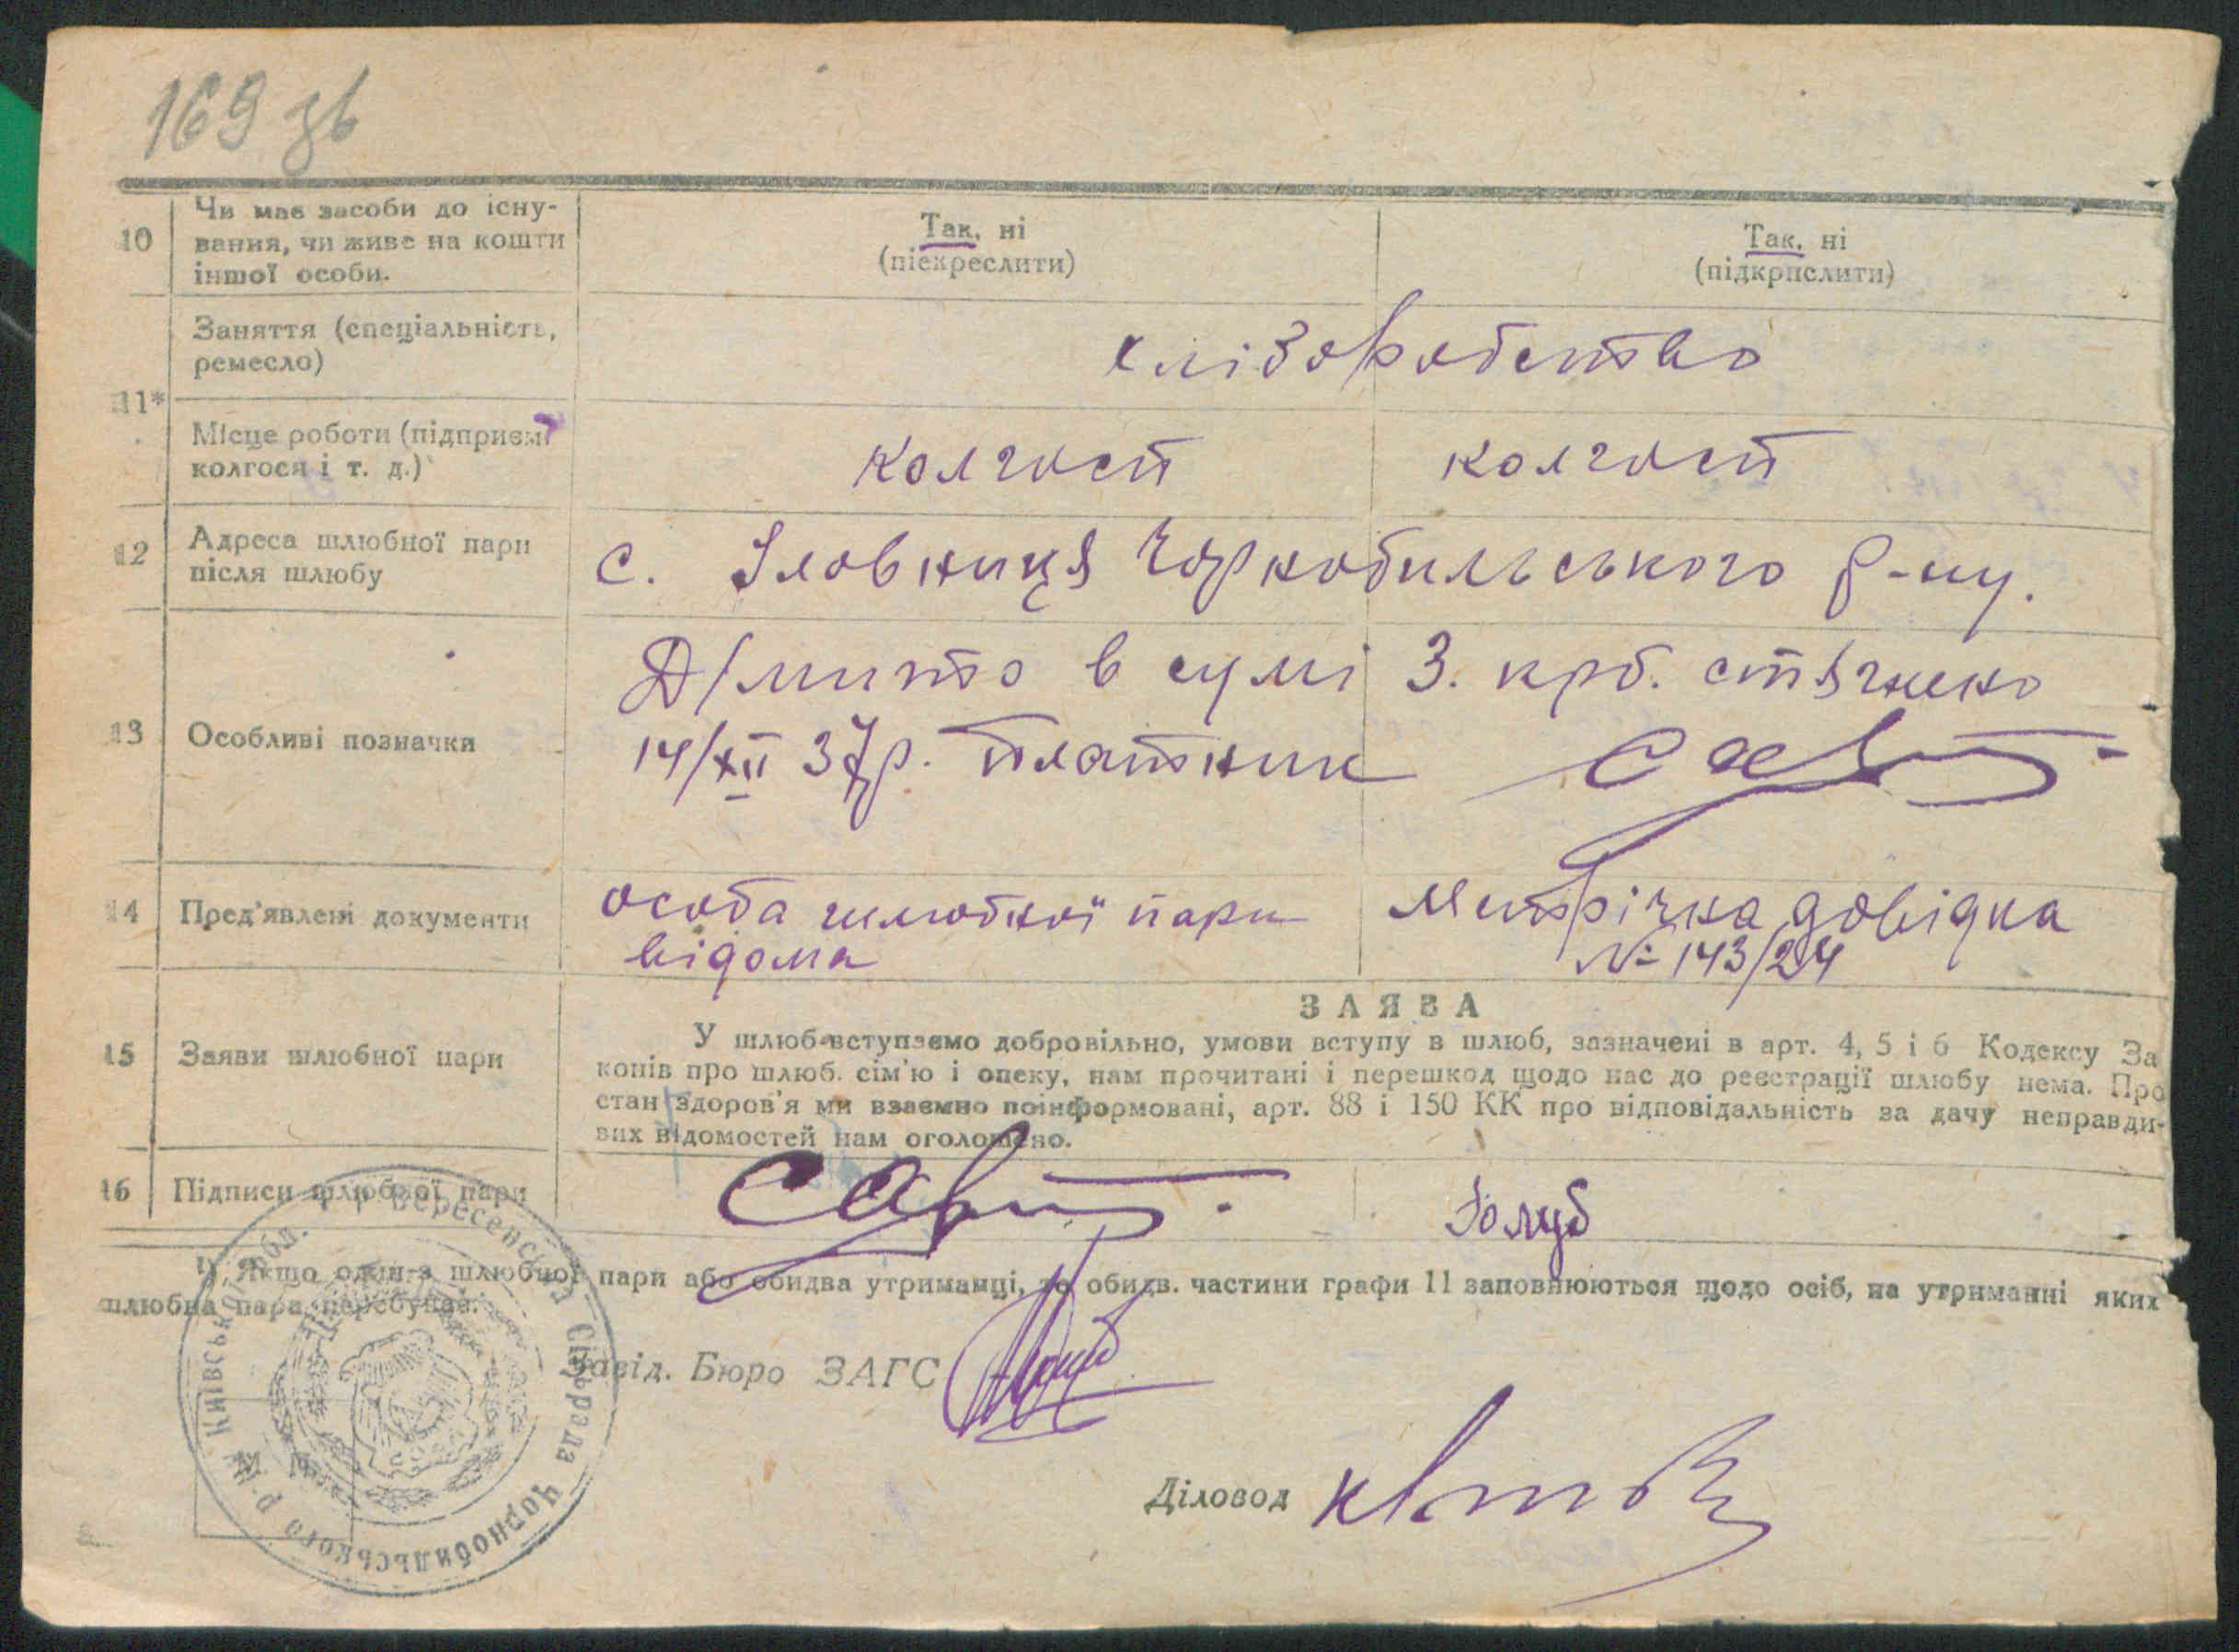 169 зв
10
Чи має засоби до існу-
вання, чи живе на кошти
іншої особи.
Так, ні
(піекреслити)
Так, ні
(підкрислити)
11*
Заняття (спеціальність,
ремесло)
хліборобство
Місце роботи (підприєм
колгося і т. д.)
колгосп
колгосп
12
Адреса шлюбної пари
після шлюбу
с. Іловниця Чорнобильського р-ну.
13
Особливі позначки
Д/мито в сумі 3. крб. стягнено
14/XII 37р. Платник
14
Пред'явлені документи
особа шлюбної пари
відома
Метрічна довідка
№ 143/24
15
Заяви шлюбної пари
ЗАЯВА
У шлюб вступаємо добровільно, умови вступу в шлюб, зазначені в арт. 4, 5 і 6 Кодексу За
конів про шлюб. сім'ю і опеку, нам прочитані і перешкод щодо нас до реєстрації шлюбу нема. Про
стан здоров'я ми взаємно поінформовані, арт. 88 і 150 КК про відповідальність за дачу неправди-
вих відомостей нам оголошено.
16
Підписи шлюбної пари
Голуб
1) Якщо один з шлюбної пари або обидва утриманці, то обидв. частини графи 11 заповнюються щодо осіб, на утриманні яких
шлюбна пара перебуває.
Завід. Бюро ЗАГС
Діловод
М.
Вересенська Сільрада Чорнобильського р-ну Київської обл.